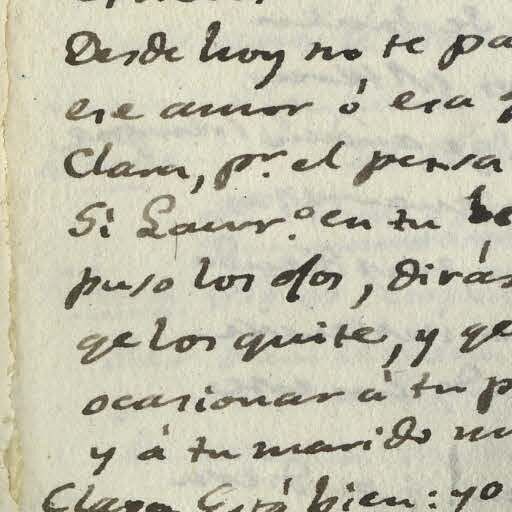 Desde hoy no te pa
ese amor ó esa
Clara, pr. el pensa
Si Laur.º en tu be
puso los ojos, dirás
qe los quite, y qe
ocasionar á tu p
y á tu marido mu
Clara Está bien: yo